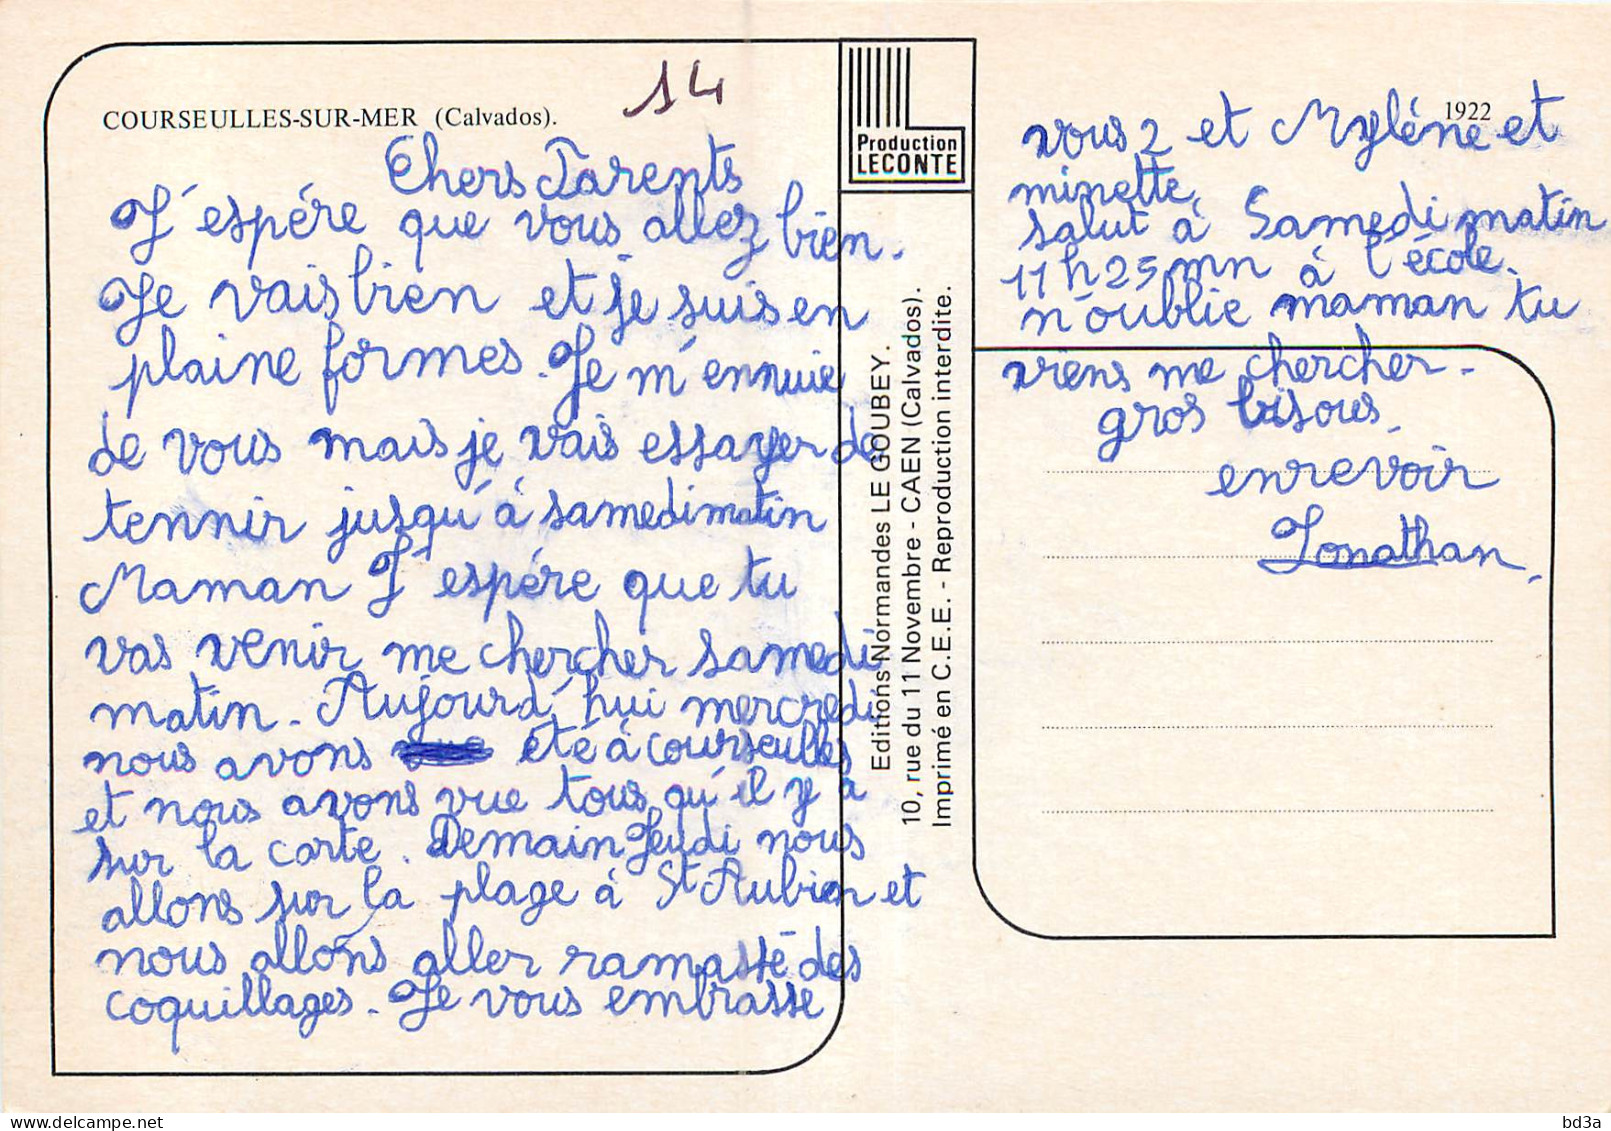 COURSEULLES-SUR-MER (Calvados).
14
Chers Parents
J'espére que vous allez bien.
Je vais bien et je suis en
plaine formes. Je m'ennuie
de vous mais je vais essayer de
tennir jusqu'à samedi matin
Maman J'espére que tu
vas venir me chercher samedi
matin. Aujourd'hui mercredi
nous avons été à courseulles
et nous avons vue tous qu'il y a
sur la carte. Demain Jeudi nous
allons sur la plage à St Aubien et
nous allons aller ramassé des
coquillages. Je vous embrasse
Production
LECONTE
Editions Normandes LE GOUBEY.
10, rue du 11 Novembre - CAEN (Calvados).
Imprimé en C.E.E. - Reproduction interdite.
1922
vous 2 et Myléne et
minette.
salut à Samedi matin
11h25mn à l'école.
n'oublie maman tu
viens me chercher.
gros bisous.
enrevoir
Jonathan.
delcampe.net
bd3a